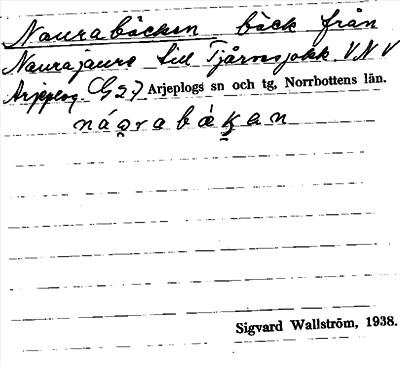 Naurabäcken bäck från
Naurajaure till Tjårvesjokk. V.N.V
Arjeplog. (G27) Arjeplogs sn och tg, Norrbottens län.
nágrabäḱan
Sigvard Wallström, 1938.